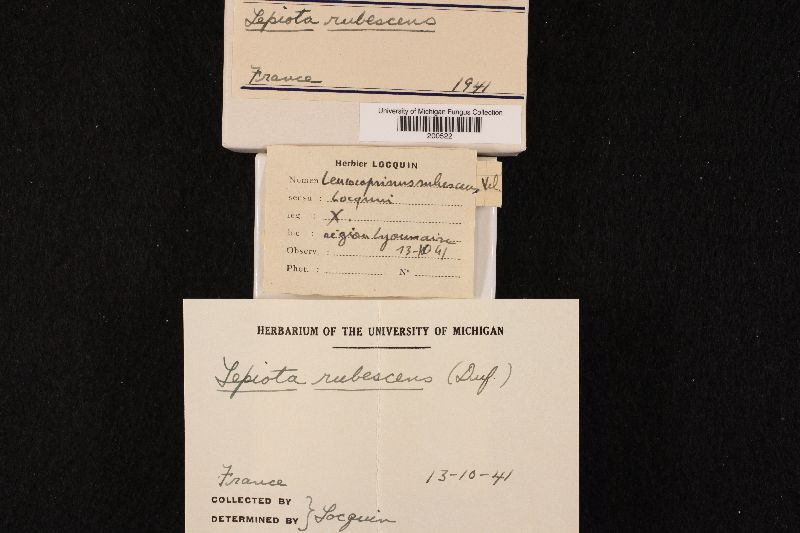 Lepiota rubescens
France 1941
University of Michigan Fungus Collection
200522
Herbier LOCQUIN
Nomen Leucocoprinus rubescens, Vel.
sensu : Locquin
leg : X.
loc : région lyonnaise
Observ. : 13-10 41
Phot. : N°
HERBARIUM OF THE UNIVERSITY OF MICHIGAN
Lepiota rubescens (Duf.)
France 13-10-41
COLLECTED BY
DETERMINED BY } Locquin